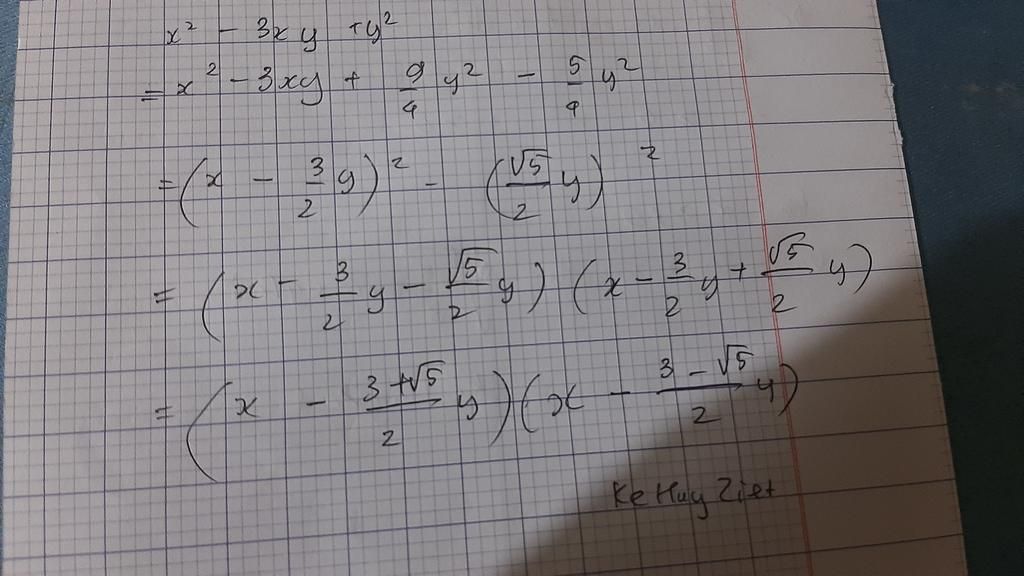 x² - 3xy + y²
= x² - 3xy + 9/4 y² - 5/4 y²
= (x - 3/2 y)² - (√5/2 y)²
= (x - 3/2 y - √5/2 y) (x - 3/2 y + √5/2 y)
= (x - 3+√5/2 y) (x - 3-√5/2 y)
Ke Huy Ziet